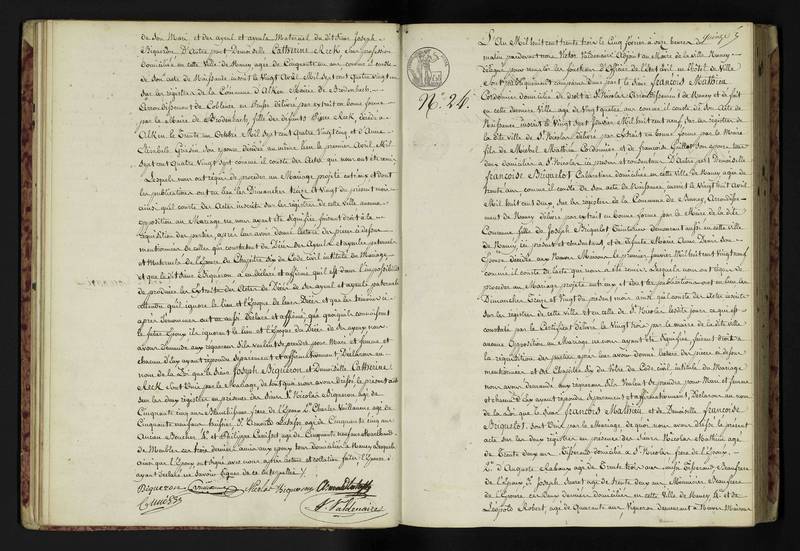 de son Mari et des ayeul et ayeule Maternel du dit Sieur Joseph
Biqueron D'Autre part Demoiselle Catherine Reck sans profession
domiciliée en cette Ville de Nancy agée de Cinquante un ans comme il conste
de son acte de Naissance inscrit le Vingt Avril Mil Sept cent quatre Vingt un
sur les registres de la Commune d'Alken Mairie de Brodenbach
arrondissement de Coblence en Prusse délivré par extrait en bonne forme
par le Maire de Brodenbach, fille des défunts Pierre Reck décédé à
Alken le Trente un Octobre Mil Sept cent Quatre Vingt Cinq et d'Anne
son épouse décédée au même lieu le premier Avril Mil
Sept cent quatre Vingt Sept comme il conste des Actes qui nous ont été remis
Lesquels nous ont requis de procéder au Mariage projetté entr'eux et dont
les publications ont eu lieu les Dimanches Treize et Vingt du présent mois
ainsi qu'il conste des Actes inscrits sur les registres de cette Ville aucune
opposition au Mariage ne nous ayant été signifiée, faisant droit à la
réquisition des parties après leur avoir donné lecture des pièces ci-dessus
mentionnées de celles qui constatent les Décès des Ayeuls et ayeules paternels
et Maternels de l'Epouse du Chapitre Six du Code civil intitulé du Mariage
et que le dit Sieur Biqueron a déclaré et affirmé qu'il est dans l'impossibilité
de produire les Extraits des Actes de Décès de ses ayeul et ayeule paternels
attendu qu'il ignore le lieu et l'Epoque de leurs Décès et que les témoins ci-
après dénommés ont aussi déclaré et affirmé que quoiqu'ils connaissent
le futur Epoux ils ignorent le lieu et l'Epoque du Décès de ses ayeux nous
avons demandé aux requérans s'ils veulent se prendre pour Mari et femme et
chacun d'eux ayant répondu séparément et affirmativement Déclarons au
nom de la Loi que le Sieur Joseph Biqueron et Demoiselle Catherine
Reck sont Unis par le Mariage, de tout quoi nous avons dressé le présent acte
sur les deux registres en présence des Sieurs 1.° Nicolas Biqueron agé de
Cinquante cinq ans frère de l'Epoux 2.° Charles agé de
Cinquante neuf ans huissier 3.° agé de Cinquante cinq ans
Ancien 4.° et Philippe agé de Cinquante neuf ans Marchand
de Meubles ces trois derniers amis aux époux tous domiciliés à Nancy lesquels
ainsi que l'Epoux ont signé avec nous après lecture et collation faite, l'Epouse a
ayant déclaré ne savoir signer de ce interpellée
Biqueron Nicolas Biqueron
F. Valdenaire
quinze
N.° 24.
L'An Mil huit cent trente trois le Cinq février à onze heures du
matin pardevant nous Victor Valdenaire Adjoint au Maire de la ville de Nancy
délégué pour remplir les fonctions d'Officier de l'état Civil en l'hôtel de Ville
Sont publiquement comparus d'une part le Sieur François Mathieu
Cordonnier domicilié de droit à St Nicolas Arrondissement de Nancy et de fait
en cette dernière Ville agé de Vingt quatre ans comme il conste de son Acte de
Naissance inscrit le Vingt Sept Janvier Mil huit cent neuf sur les registres de
la dite ville de St Nicolas délivré par extrait en bonne forme par le Maire
fils de Michel Mathieu Cordonnier et de françoise son épouse tous
deux domiciliés à St Nicolas ici présens et consentans D'Autre part Demoiselle
françoise Bicquelot Culottière domiciliée en cette Ville de Nancy agée de
trente ans comme il conste de son acte de Naissance, inscrit le Vingt Avril
Mil huit cent deux, sur les registres de la Commune de Nancy, Arrondisse-
ment de Nancy délivré par extrait en bonne forme par le Maire de la dite
Commune fille de Joseph Biquelot domicilié aussi en cette ville
de Nancy ici présent et consentant et de défunte Marie Anne son
Epouse décédée au même le premier Janvier Mil huit cent Vingt neuf
comme il conste de l'acte qui nous a été remis. Lesquels nous ont requis de
procéder au Mariage projetté entr'eux et dont les publications ont eu lieu les
Dimanches Treize et Vingt du présent mois ainsi qu'il conste des Actes inscrits
sur les registres de cette Ville et en celle de St Nicolas lesdits jours ce qui est
constaté par le Certificat délivré le Vingt trois par le maire de la dite ville
aucune Opposition au Mariage ne nous ayant été signifiée, faisant droit à
la réquisition des parties après leur avoir donné lecture des pièces ci-dessus
mentionnées et du Chapitre Six du Titre du Code civil, intitulé du Mariage
nous avons demandé aux requérans s'ils Veulent se prendre pour Mari et femme
et chacun d'eux ayant répondu séparément et affirmativement, Déclarons au nom
de la Loi que le Sieur François Mathieu et Demoiselle françoise
Biquelot, sont Unis par le Mariage de quoi nous avons dressé le présent
acte sur les deux registres en présence des Sieurs Nicolas Mathieu agé
de Trente deux ans domicilié à St Nicolas frère de l'Epoux,
2.° d'Auguste agé de Trente trois ans aussi Beaufrère
de l'Epoux 3.° Joseph agé de trente deux ans Menuisier Beaufrère
de l'Epouse ces deux derniers domiciliés en cette Ville de Nancy 4.° et de
Léopold Robert, agé de Quarante ans Vigneron demeurant à